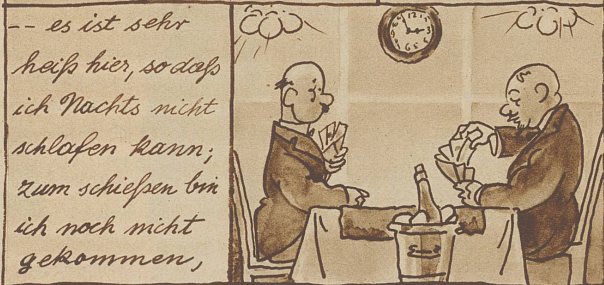 -- es ist sehr
heiß hier, so daß
ich Nachts nicht
schlafen kann;
zum schießen bin
ich noch nicht
gekommen,